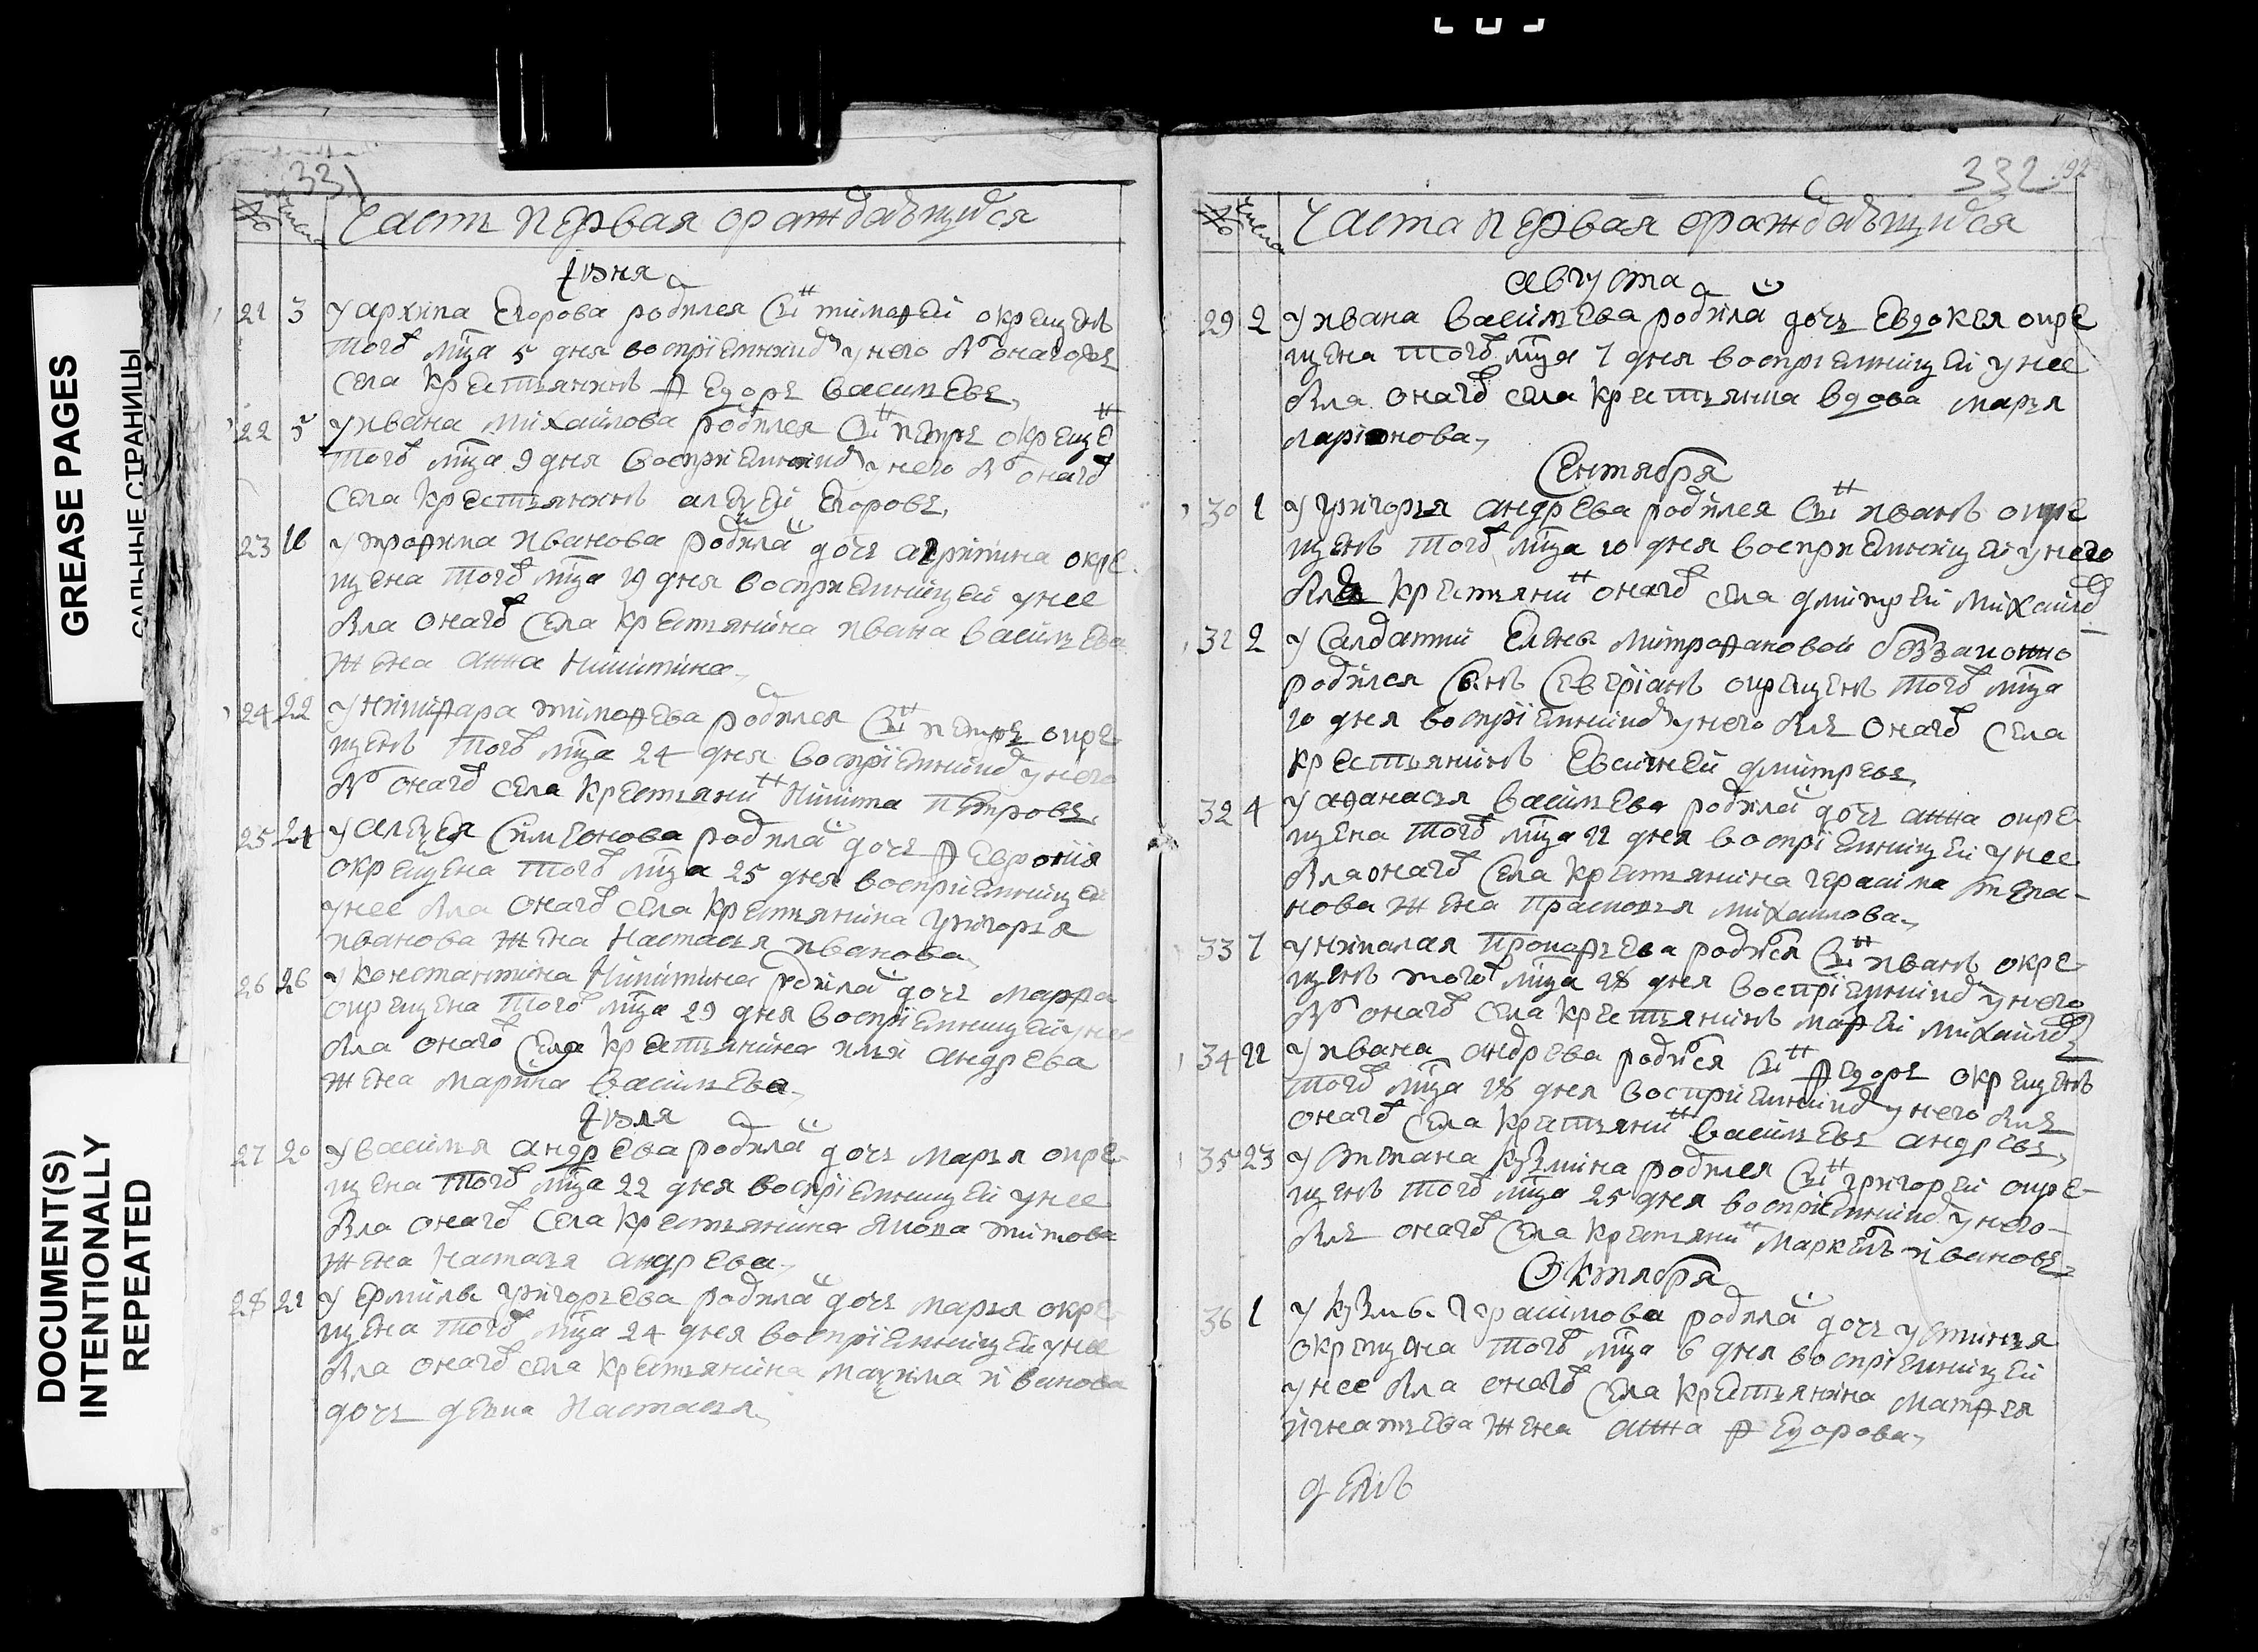 GREASE PAGES
САЛЬНЫЕ СТРАНИЦЫ
DOCUMENT(S)
INTENTIONALLY
REPEATED
331
№ числа
Часть первая о раждаѣщихся
Іюня
21 3 У архипа Егорова родился Снъ тимофей окрещенъ
того мца 5 дня восприемникомъ у него былъ онагожъ
села крестьянинъ Федоръ васильевъ
22 5 У ивана михайлова родился Снъ петръ окрещен
того мца 9 дня восприемникомъ у него былъ онаго
села крестьянинъ алеѯей Егоровъ
23 16 У трофима иванова родилась дочь агрипина окре
щена того мца 19 дня восприемницей у нее
была онаго Села крестьянина ивана васильева
жена анна никитина
24 22 У никифара тимофеева родился Снъ петръ окре
щенъ того мца 24 дня восприемникомъ у него
былъ онаго села крестьянин никита петровъ
25 24 У алеѯея Симеонова родилась дочь Феврония
окрещена того мца 25 дня восприемницей
у нее была онаго села крестьянина григорья
иванова жена настасья иванова
26 26 У константина никитина родилась дочь марфа
окрещена того мца 29 дня восприемницей у нее
была онаго села крестьянина ильи андреева
жена марина васильева
Іюля
27 20 У василья андреева родилась дочь марья окре
щена того мца 22 дня восприемницей у нее
была онаго села крестьянина якова титова
жена настасья андреева
28 21 У Ермилы григорьева родилась дочь марья окре
щена того мца 24 дня восприемницей у нее
была онаго села крестьянина маѯима иванова
дочь девка настасья
332
192
№ числа
Часть первая о раждаѣщихся
августа
29 2 У ивана васильева родилась дочь Евдокея окре
щена того мца 7 дня восприемницей у нее
была онаго села крестьянка вдова марья
ларионова
Сентября
30 1 У григорья андреева родился Снъ иванъ окре
щенъ того мца 10 дня восприемницей у него
былъ крестьянин онаго села дмитрей михайлов
32 2 У Салдатки Елены митрофановой беззаконно
родился Сынъ Северіанъ окрещенъ того мца
10 дня восприемникомъ у него былъ онаго Села
крестьянинъ Евсигней дмитревъ
32 4 У афанасья васильева родилась дочь анна окре
щена того мца 11 дня восприемницей у нее
была онаго Села крестьянина герасима степа-
нова жена прасковья михайлова
33 7 У николая прокофьева родился Снъ иванъ окре
щенъ того мца 18 дня восприемникомъ у него
былъ онаго села крестьянинъ мафей михайловъ
34 11 У ивана андреева родился Снъ Федоръ окрещенъ
того мца 18 дня восприемникомъ у него былъ
онаго Села крестьянин васильевъ андревъ
35 23 У степана кузмина родился Снъ григорей окре-
щенъ того мца 25 дня восприемникомъ у него
былъ онаго Села крестьянин маркелъ ивановъ
Октября
36 1 У кузмы герасимова родилась дочь устинья
окрещена того мца 6 дня восприемницей
у нее была онаго Села крестьянина матфея
игнатьева жена анна Федорова